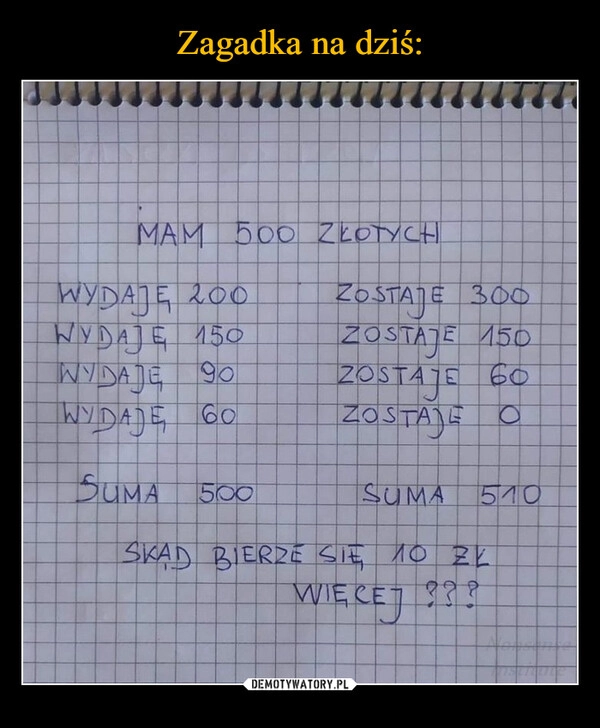 Zagadka na dziś:
MAM 500 ZŁOTYCH
WYDAJĘ 200 ZOSTAJE 300
WYDAJĘ 150 ZOSTAJE 150
WYDAJĘ 90 ZOSTAJE 60
WYDAJĘ 60 ZOSTAJE 0
SUMA 500 SUMA 510
SKĄD BIERZE SIĘ 10 ZŁ
WIĘCEJ ???
DEMOTYWATORY.PL